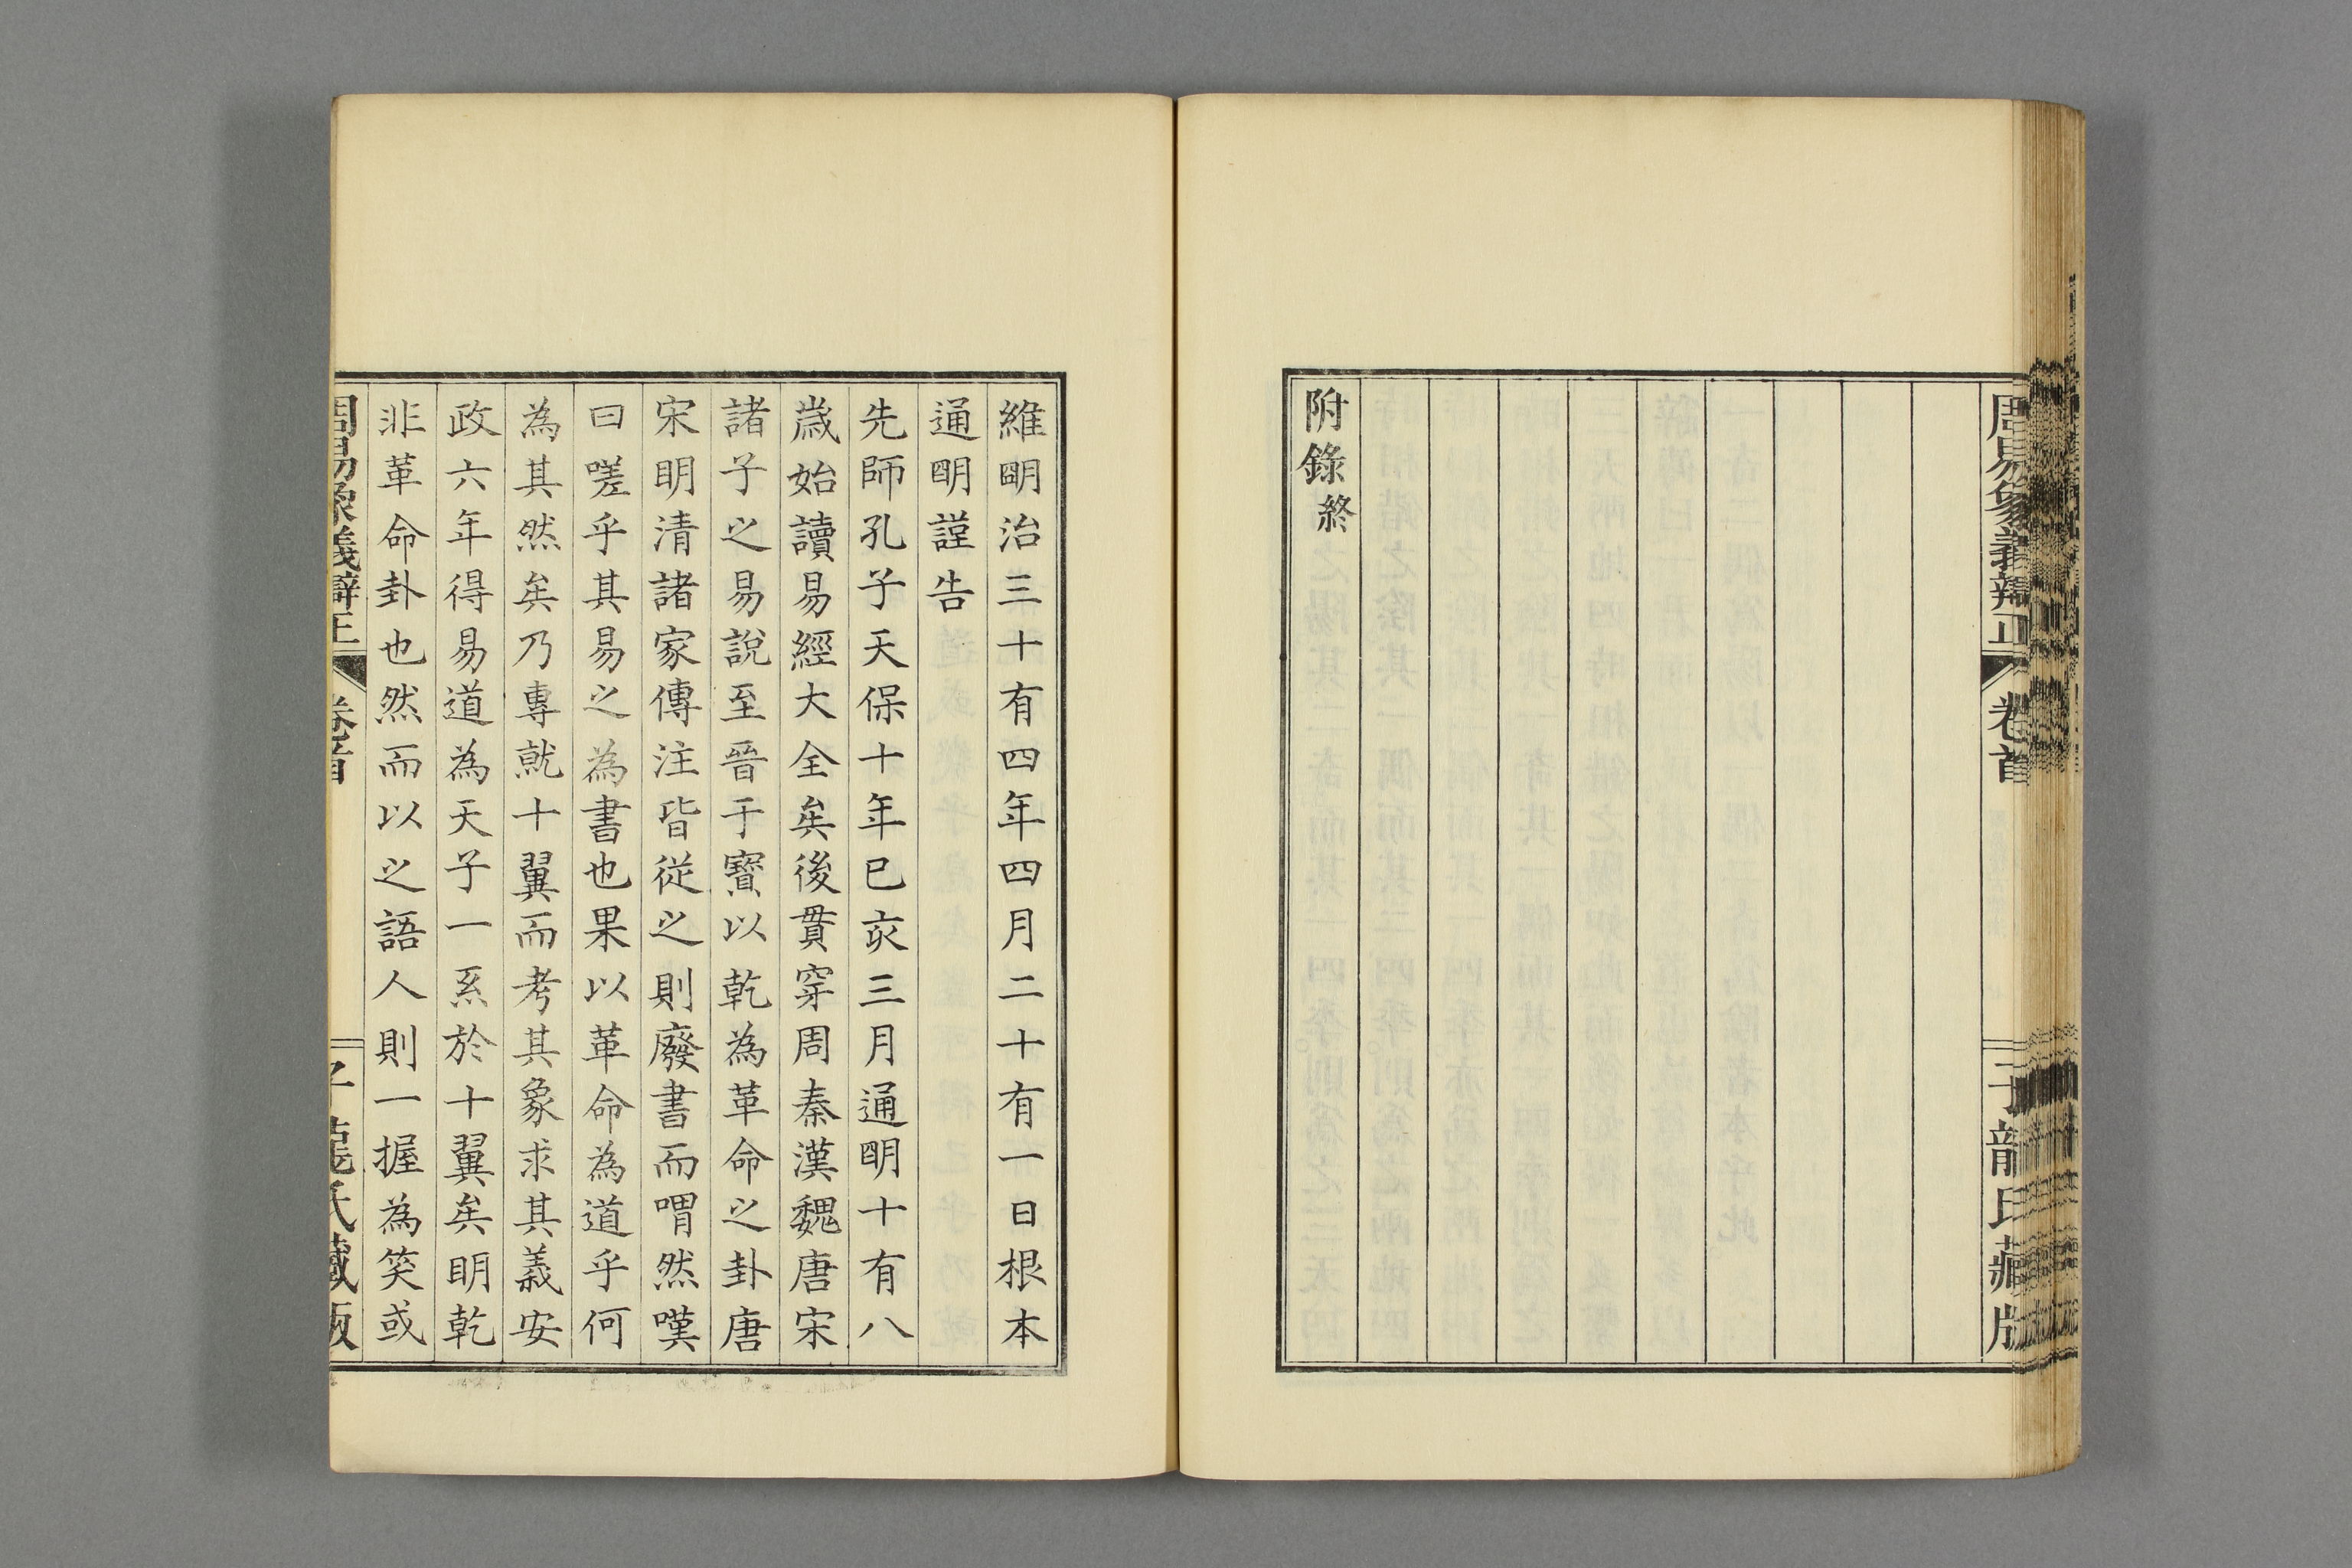 周易象義辯正
卷首
子龍氏藏版
附錄終
維明治三十有四年四月二十有一日根本
通明謹告
先師孔子天保十年已亥三月通明十有八
歲始讀易經大全矣後貫穿周秦漢魏唐宋
諸子之易說至晉于寶以乾為革命之卦唐
宋明清諸家傳注皆從之則廢書而喟然嘆
曰嗟乎其易之為書也果以革命為道乎何
為其然矣乃專就十翼而考其象求其義安
政六年得易道為天子一系於十翼矣明乾
非革命卦也然而以之語人則一握為笑或
周易象義辯正
卷首
子龍氏藏版